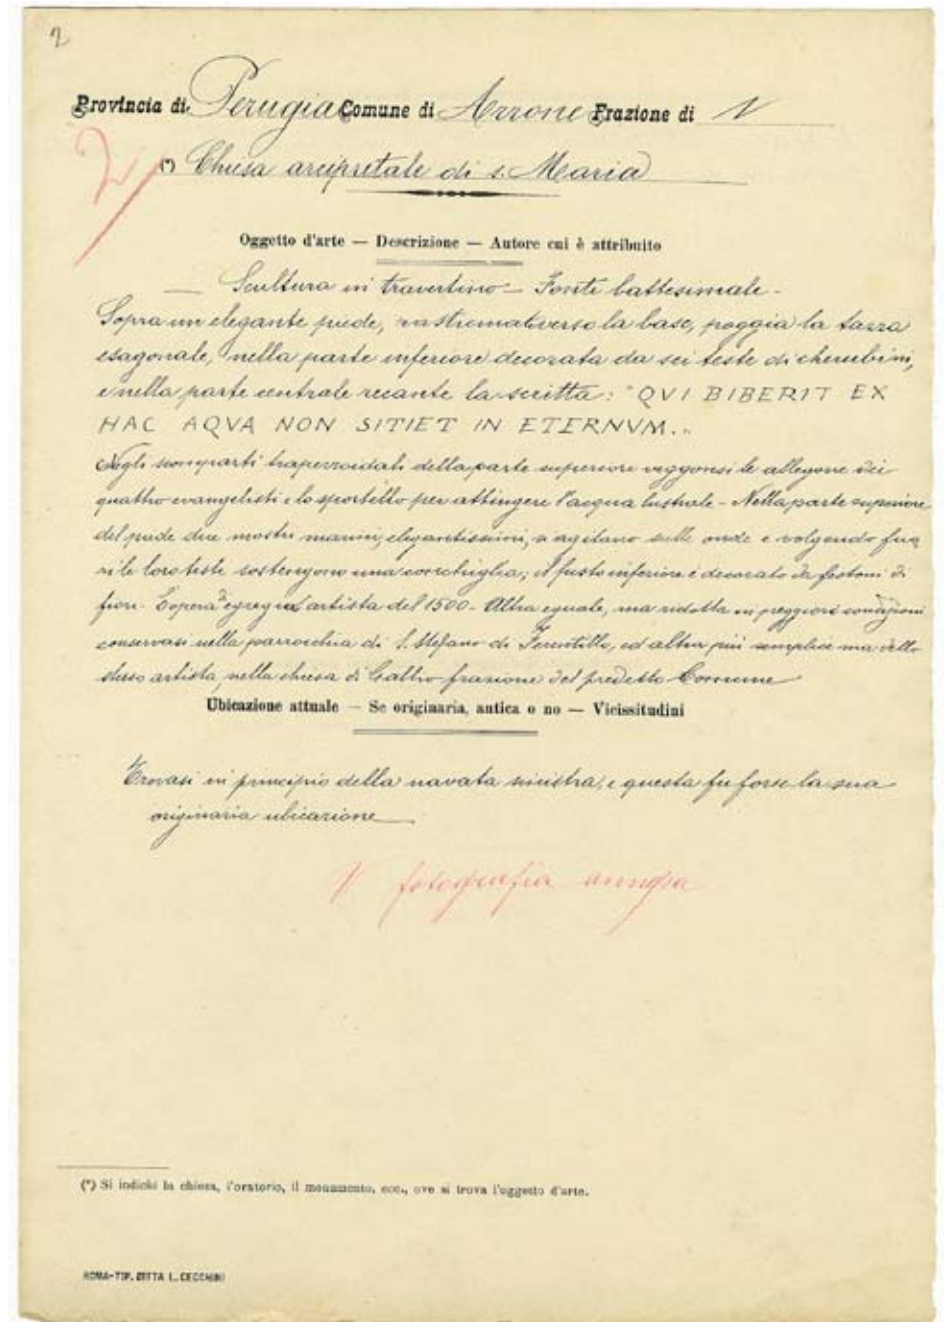 2
Provincia di Perugia Comune di Arrone Frazione di
2
(*) Chiesa arcipretale di s. Maria
Oggetto d'arte — Descrizione — Autore cui è attribuito
— Scultura in travertino — Fonte battesimale -
Sopra un elegante piede, rastremato verso la base, poggia la tazza
esagonale, nella parte inferiore decorata da sei teste di cherubini,
e nella parte centrale recante la scritta: "QVI BIBERIT EX
HAC AQVA NON SITIET IN ETERNVM.„
Negli scomparti trapezoidali della parte superiore veggonsi le allegorie dei
quattro evangelisti e lo sportello per attingere l'acqua lustrale - Nella parte superiore
del piede due mostri marini, elegantissimi, si agitano sulle onde e volgendo fuo
ri le loro teste sostengono una conchiglia; il fusto inferiore è decorato da festoni di
fiori. - È opera d'egregio artista del 1500 - Altra eguale, ma ridotta in peggiori condizioni
conservasi nella parrocchia di S. Stefano di Ferentillo, ed altra più semplice ma dello
stesso artista, nella chiesa di Gabbio frazione del predetto Comune
Ubicazione attuale — Se originaria, antica o no — Vicissitudini
Trovasi in principio della navata sinistra, e questa fu forse la sua
originaria ubicazione
fotografia annessa
(*) Si indichi la chiesa, l'oratorio, il monumento, ecc., ove si trova l'oggetto d'arte.
ROMA-TIP. DITTA L. CECCHINI